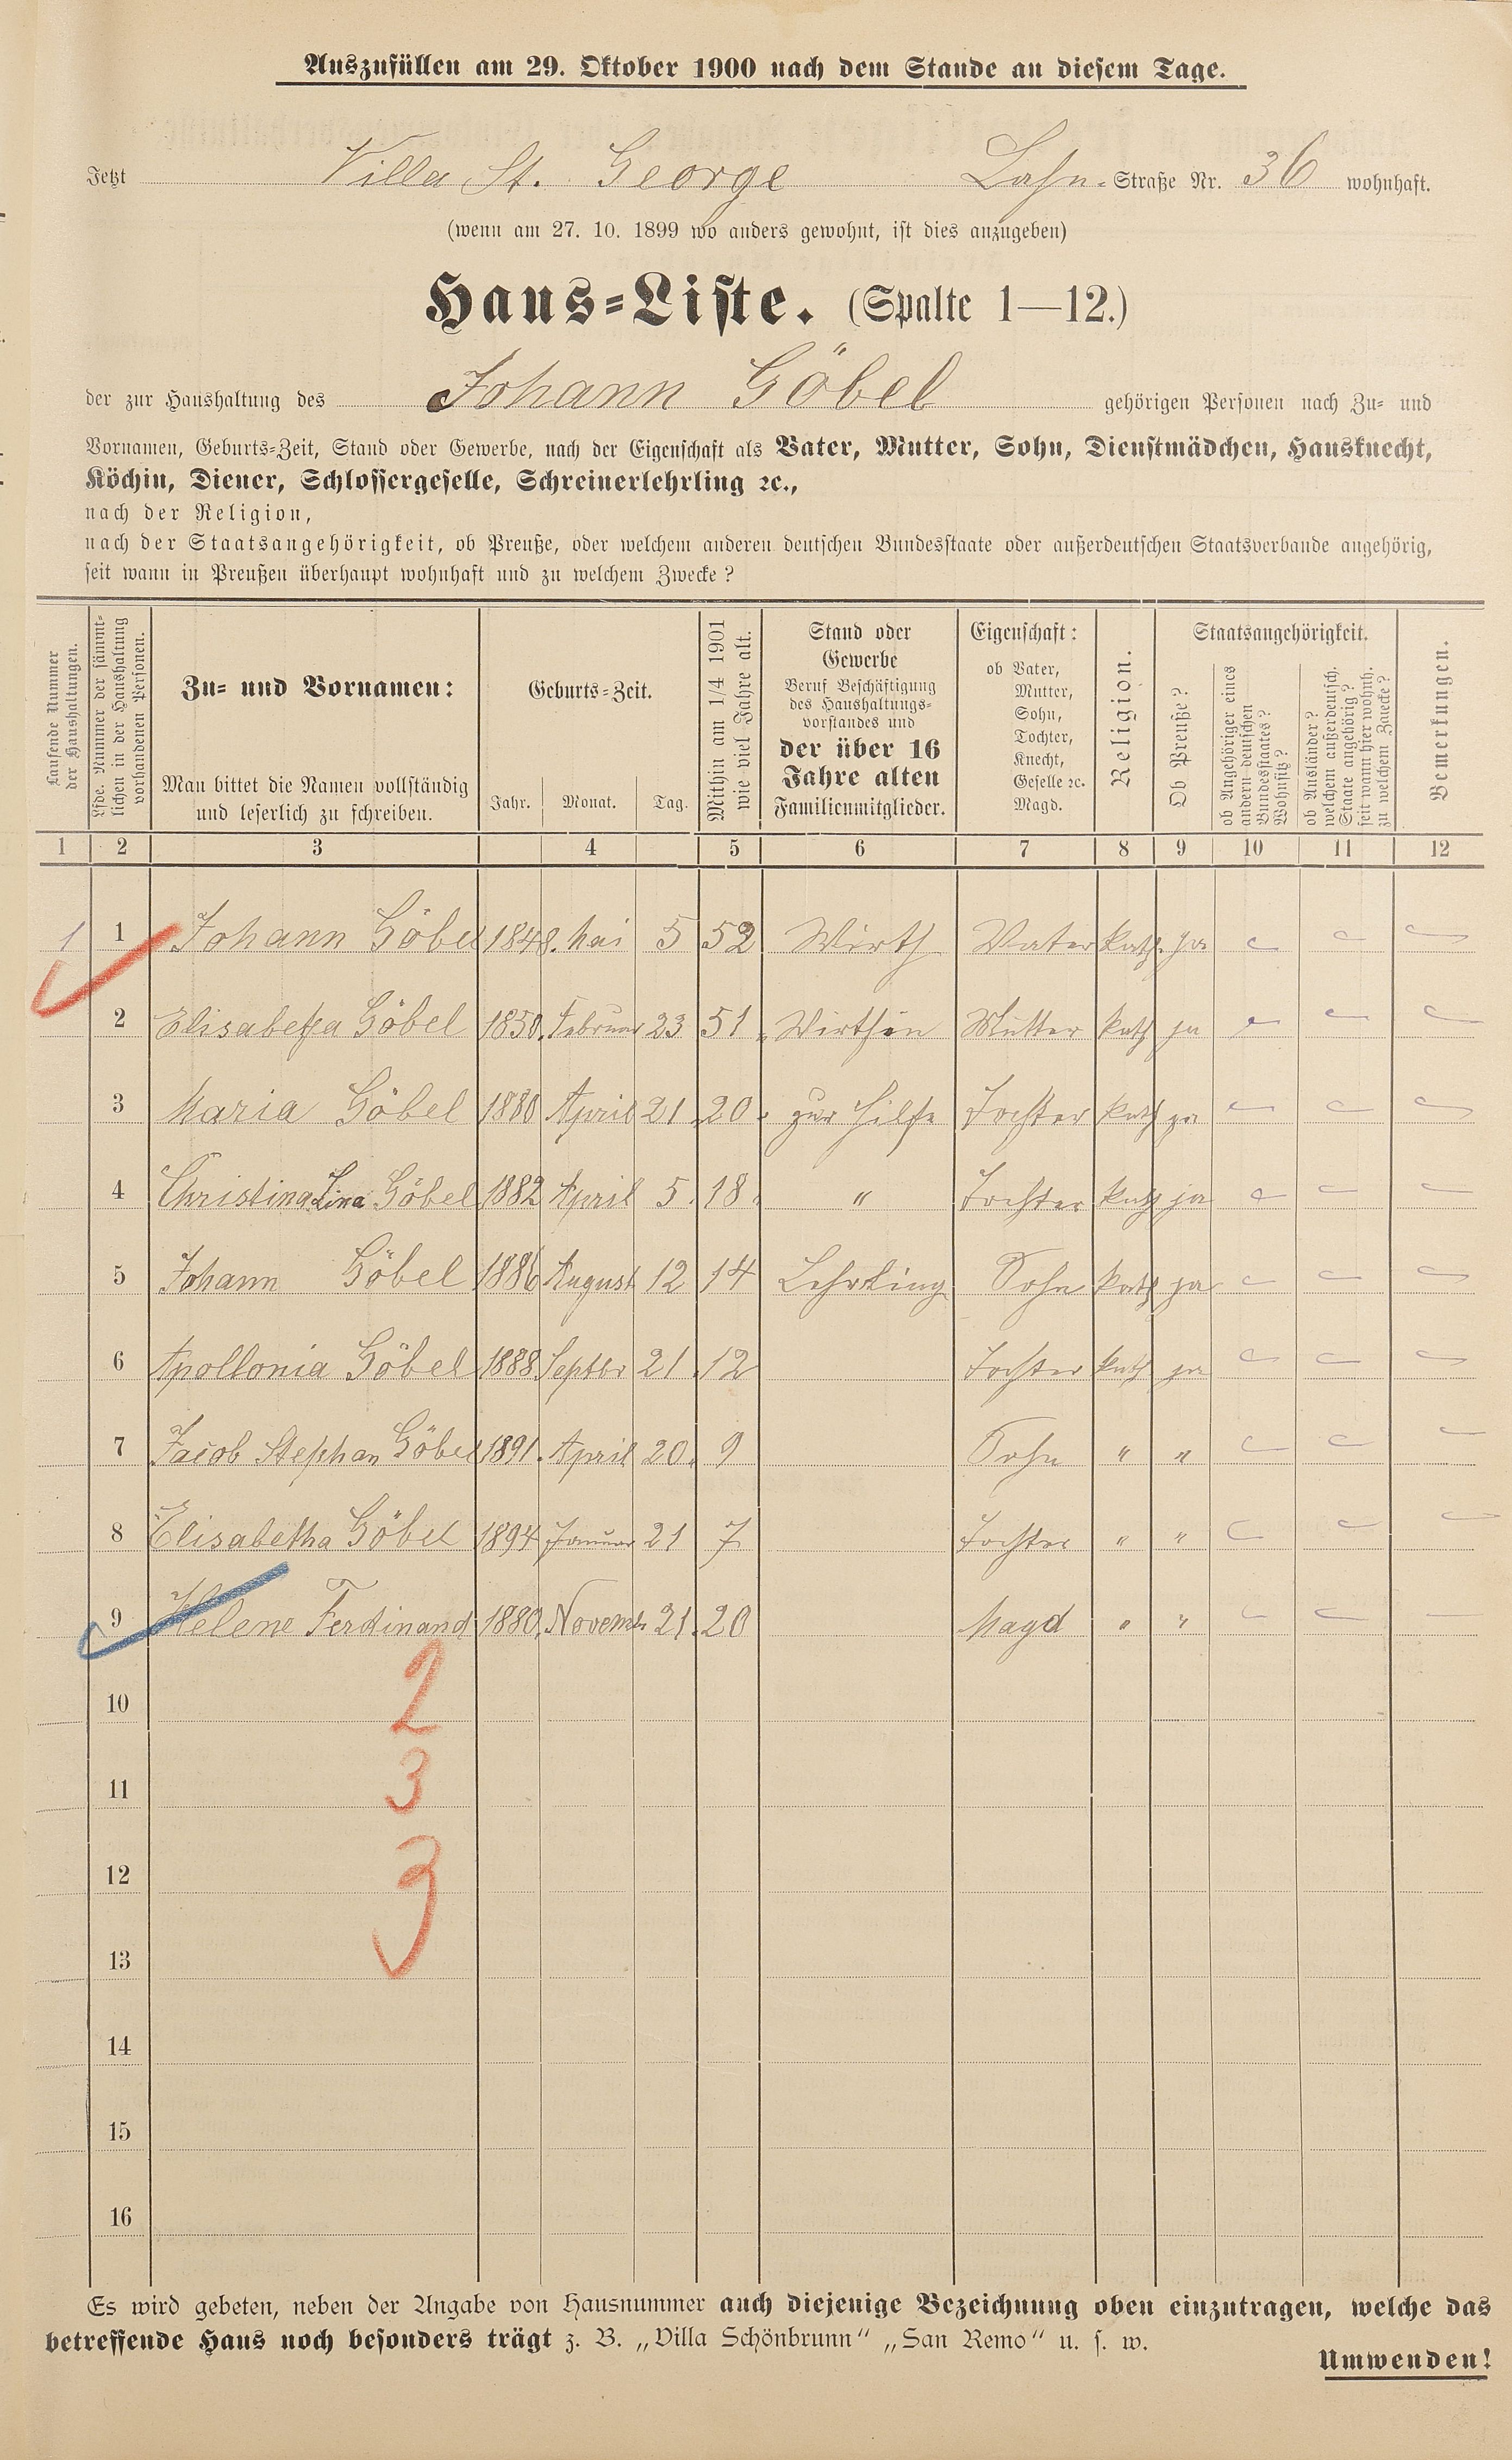 Auszufüllen am 29. Oktober 1900 nach dem Stande an diesem Tage.
Jetzt Villa St. George Lahn-Straße Nr. 36 wohnhaft.
(wenn am 27. 10. 1899 wo anders gewohnt, ist dies anzugeben)
Haus-Liste. (Spalte 1—12.)
der zur Haushaltung des Johann Göbel gehörigen Personen nach Zu- und
Vornamen, Geburts-Zeit, Stand oder Gewerbe, nach der Eigenschaft als Vater, Mutter, Sohn, Dienstmädchen, Hausknecht,
Köchin, Diener, Schlossergeselle, Schreinerlehrling ꝛc.,
nach der Religion,
nach der Staatsangehörigkeit, ob Preuße, oder welchem anderen deutschen Bundesstaate oder außerdeutschen Staatsverbande angehörig,
seit wann in Preußen überhaupt wohnhaft und zu welchem Zwecke?
Laufende Nummer
der Haushaltungen.
Lfde. Nummer der sämmt-
lichen in der Haushaltung
vorhandenen Personen.
Zu- und Vornamen:
Man bittet die Namen vollständig
und leserlich zu schreiben.
Geburts-Zeit.
Jahr. Monat. Tag.
Mithin am 1/4 1901
wie viel Jahre alt.
Stand oder
Gewerbe
Beruf Beschäftigung
des Haushaltungs-
vorstandes und
der über 16
Jahre alten
Familienmitglieder.
Eigenschaft:
ob Vater,
Mutter,
Sohn,
Tochter,
Knecht,
Geselle ꝛc.
Magd.
Religion.
Staatsangehörigkeit.
Ob Preuße?
ob Angehöriger eines
andern deutschen
Bundesstaates?
Wohnsitz?
ob Ausländer?
welchem außerdeutsch.
Staate angehörig?
seit wann hier wohnh.
zu welchem Zwecke?
Bemerkungen.
1 2 3 4 5 6 7 8 9 10 11 12
1 1 Johann Göbel 1848. Mai 5 52 Wirth Vater kath. ja
2 Elisabetha Göbel 1850. Februar 23 51 Wirthin Mutter kath ja
3 Maria Göbel 1880 April 21 20 zur Hilfe Tochter kath ja
4 Christina Lina Göbel 1882 April 5. 18 " Tochter kath ja
5 Johann Göbel 1886 August 12 14 Lehrling Sohn kath ja
6 Apollonia Göbel 1888 Septbr 21 12 Tochter kath ja
7 Jacob Stephan Göbel 1891. April 20. 9 Sohn " "
8 Elisabetha Göbel 1894 Januar 21 7 Tochter " "
9 Helene Ferdinand 1880. Novemb. 21. 20 Magd " "
2
10
3
11
3
12
13
14
15
16
Es wird gebeten, neben der Angabe von Hausnummer auch diejenige Bezeichnung oben einzutragen, welche das
betreffende Haus noch besonders trägt z. B. „Villa Schönbrunn“ „San Remo“ u. s. w.
Umwenden!